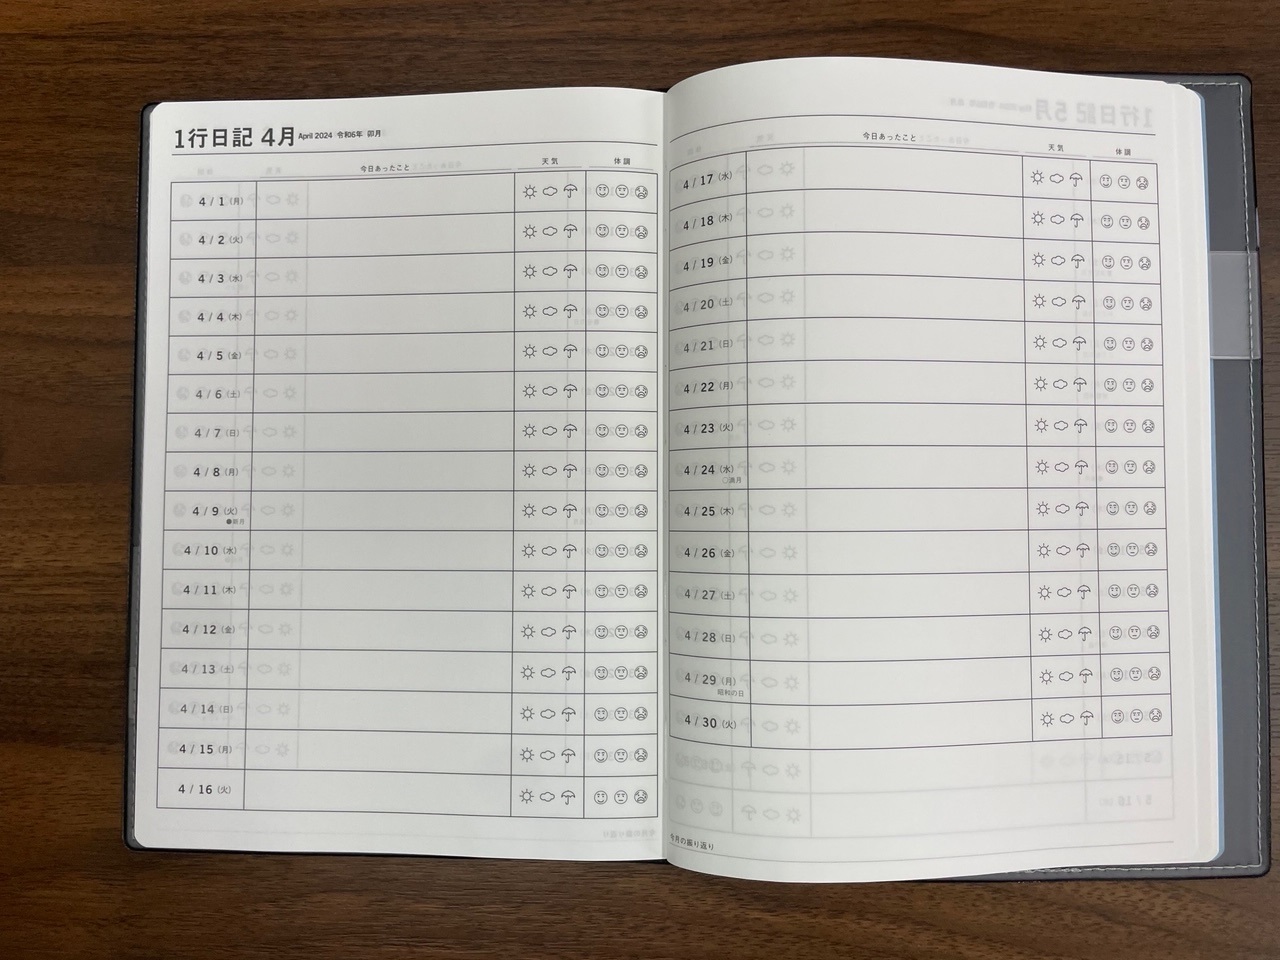 1行日記 4月 April 2024 令和6年 卯月
今日あったこと 天気 体調
4 / 1 (月)
4 / 2 (火)
4 / 3 (水)
4 / 4 (木)
4 / 5 (金)
4 / 6 (土)
4 / 7 (日)
4 / 8 (月)
4 / 9 (火)
●新月
4 / 10 (水)
4 / 11 (木)
4 / 12 (金)
4 / 13 (土)
4 / 14 (日)
4 / 15 (月)
4 / 16 (火)
今日あったこと 天気 体調
4 / 17 (水)
4 / 18 (木)
4 / 19 (金)
4 / 20 (土)
4 / 21 (日)
4 / 22 (月)
4 / 23 (火)
4 / 24 (水)
○満月
4 / 25 (木)
4 / 26 (金)
4 / 27 (土)
4 / 28 (日)
4 / 29 (月)
昭和の日
4 / 30 (火)
今月の振り返り